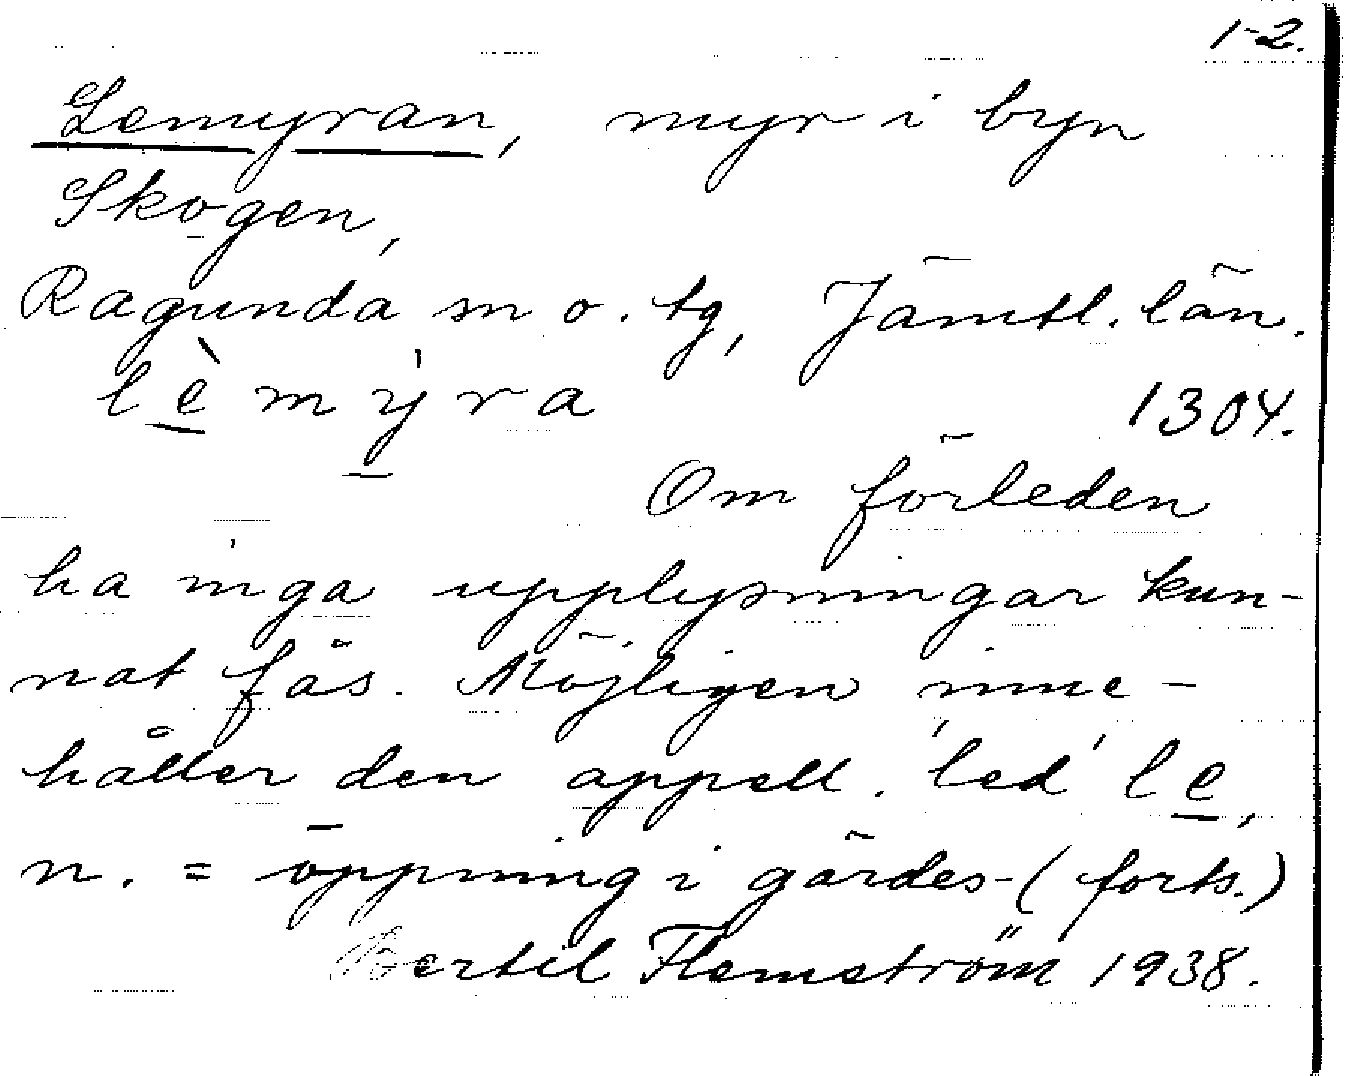 1-2.
Lemyran, myr i byn
Skogen,
Ragunda sn o. tg, Jämtl. län.
lèmy̍ra 1304.
Om förleden
ha inga upplysningar kun-
nat fås. Möjligen inne-
håller den appell. 'led' le,
n. = öppning i gärdes- (forts.)
Bertil Flemström 1938.